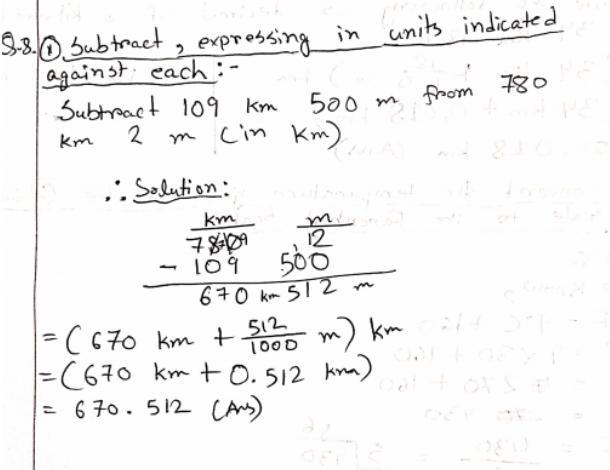 Q-8. ① Subtract, expressing in units indicated
against each :-
Subtract 109 km 500 m from 780
km 2 m (in km)
∴ Solution:
km m
12
- 109 500
670 km 512 m
= (670 km + 512/1000 m) km
= (670 km + 0.512 km)
= 670.512 (Ans)